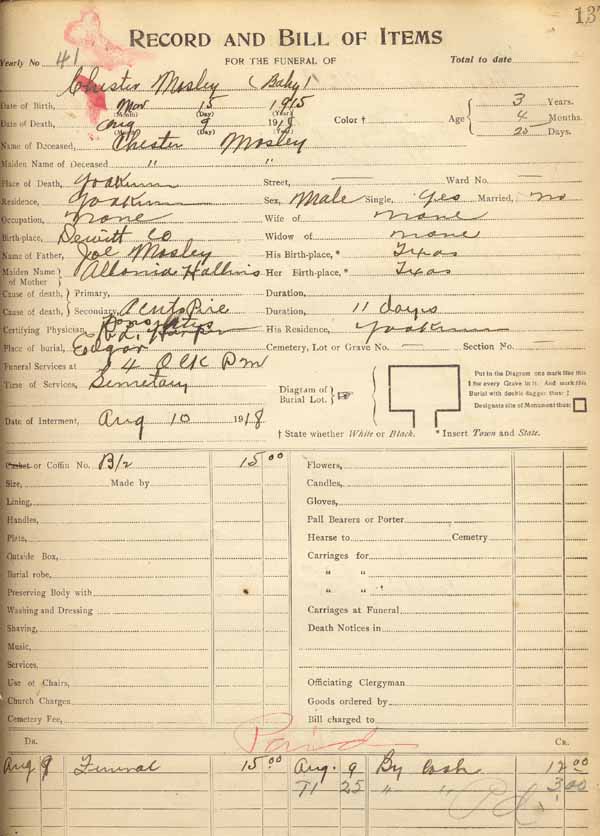 137
RECORD AND BILL OF ITEMS
Yearly No 41 FOR THE FUNERAL OF Total to date
Chester Mosley (Baby)
Date of Birth, Mar 15 1915 3 Years.
(Month) (Day) (Year)
Date of Death, Aug 9 1918 Color † Age 4 Months.
(Month) (Day) (Year) 25 Days.
Name of Deceased, Chester Mosley
Maiden Name of Deceased " "
Place of Death, Yoakum Street, — Ward No. —
Residence, Yoakum Sex, Male Single, Yes Married, no
Occupation, none Wife of none
Birth-place, Dewitt Co Widow of none
Name of Father, Joe Mosley His Birth-place, * Texas
Maiden Name of Mother Her Birth-place, * Texas
Cause of death, Primary, Duration,
Cause of death, Secondary, Duration, 11 days
Certifying Physician, His Residence, Yoakum
Place of burial, Edgar Cemetery, Lot or Grave No. — Section No. —
Funeral Services at 4 O CLK Pm
Time of Services,
Diagram of Burial Lot.
Put in the Diagram one mark like this
| for every Grave in it. And mark this
Burial with double dagger thus: ‡
Designate site of Monument thus: □
Date of Interment, Aug 10 1918
† State whether White or Black. * Insert Town and State.
Casket or Coffin No. B/2 15 00 Flowers,
Size, Made by Candles,
Lining, Gloves,
Handles, Pall Bearers or Porter
Plate, Hearse to Cemetry
Outside Box, Carriages for
Burial robe, " "
Preserving Body with " "
Washing and Dressing Carriages at Funeral
Shaving, Death Notices in
Music,
Services,
Use of Chairs, Officiating Clergyman
Church Charges Goods ordered by
Cemetery Fee, Bill charged to
DR. Paid CR.
Aug 9 Funeral 15.00 Aug. 9 By Cash 12 00
25 " " 3.00
Pd